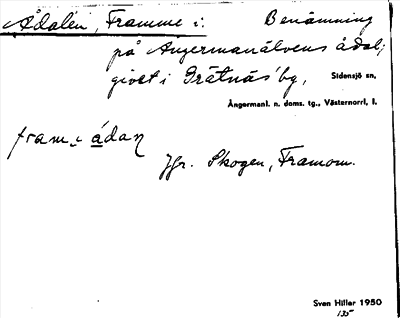 Ådalen, Framme i: Benämning
på Ångermanälvens ådal;
givet i Grätnäs by, Sidensjö sn,
Ångermanl. n. doms. tg., Västernorrl. l.
fram i ådan
Jfr. Skogen, Framom.
Sven Hiller 1950
135